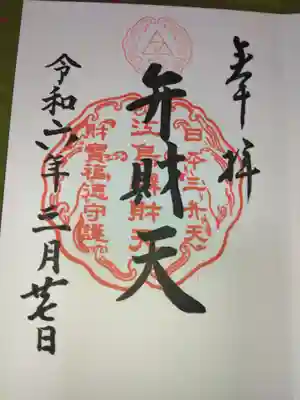 奉拝
日本三弁天
江島弁財天
財寶福徳守護
弁財天
令和六年三月廿七日